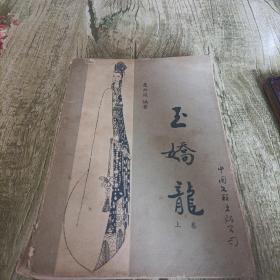 聂云岚 编著
玉嬌龍
上卷
中国文联出版公司